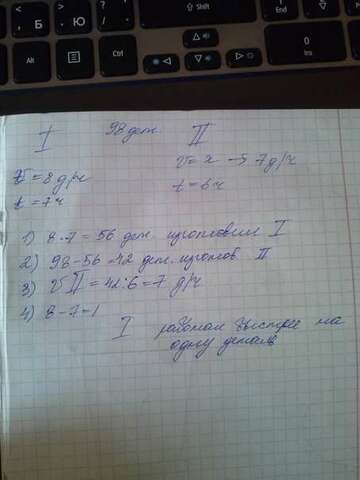 Б
Ю
⇧ Shift
End
Alt
Ctrl
0
Ins
I 98 дет. II
v = 8 д/ч
v = x - 7 д/ч
t = 7 ч
t = 6 ч
1) 8 · 7 = 56 дет. изготовил I
2) 98 - 56 = 42 дет. изготов II
3) v II = 42 : 6 = 7 д/ч
4) 8 - 7 = 1
I работал быстрее на
одну деталь